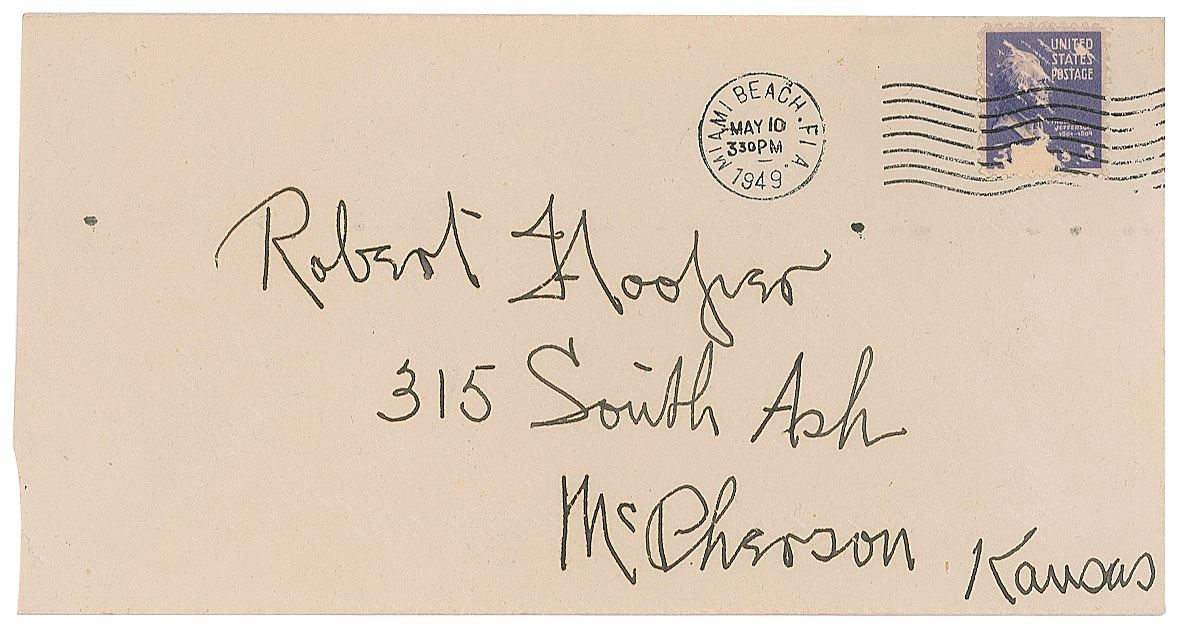 UNITED
STATES
POSTAGE
JEFFERSON
1801-1809
3 3
MIAMI BEACH. FLA.
MAY 10
330PM
1949
Robert Hooper
315 South Ash
McPherson Kansas